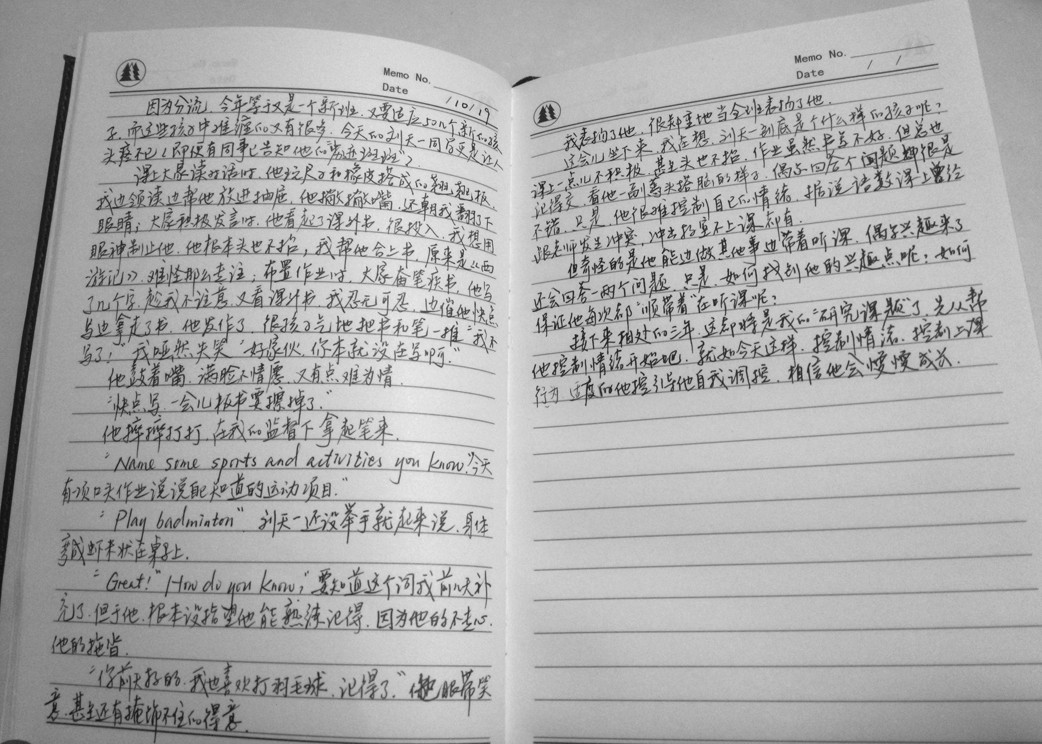 Memo No.
Date 1 10 1 19
因为分流，今年等于又是一个新班，又要适应50几个新的孩
子，而这些孩子中难缠的又有很多，今天的刘天一同学更是让人
头疼不已（即便有同事已告知他的"劣迹斑斑"）
课上大屏读对话时，他立尺子和橡皮搭成的跷跷板，
我边领读边帮他放进抽屉，他撇撇嘴，还朝我翻了下
眼睛；大屏积极发言时，他看起了课外书，很投入，我想用
眼神制止他，他根本头也不抬，我帮他合上书，原来是《西
游记》，难怪那么专注；布置作业时，大屏奋笔疾书，他写
了几个字，趁我不注意，又看课外书，我忍无可忍，边催他快点
写边拿走了书，他发作了，很孩子气地把书和笔一推"我不
写了！"我哑然失笑"好家伙，你本就没在写啊。"
他鼓着嘴，满脸不情愿，又有点难为情。
"快点写，一会儿板书要擦掉了。"
他摔摔打打，在我的监督下拿起笔来。
"Name some sports and activities you know."今天
有项口头作业说说配知道的运动项目。"
"Play badminton" 刘天一还没举手就起来说，身体
弯成虾米状在桌子上。
"Great!" How do you know,"要知道这个词我前几天补
充了，但于他，根本没指望他能熟练记得，因为他的不走心，
他的拖沓。
"你前天打的，我也喜欢打羽毛球，记得了。"他眼带笑
意，甚至还有掩饰不住的得意。
Memo No.
Date / /
我表扬了他，很郑重地当全班表扬了他。
这会儿坐下来，我在想，刘天一到底是个什么样的孩子呢？
课上一点儿不积极，甚至头也不抬，作业虽然书写不好，但总也
记得交，看他一副虎头搭脑的样子，偶尔回答个问题却很是
不错，只是，他很难控制自己的情绪，据说语数课上曾经
跟老师发生冲突，冲去档案不上课都有。
但奇怪的是他能边做其他事边带着听课，偶尔兴趣来了
还会回答一两个问题，只是，如何找到他的兴趣点呢？如何
保证他每次都"顺带着"在听课呢？
接下来相处的三年，这却将是我的"研究课题"了，先从帮
他控制情绪开始吧，就如今天这样，控制情绪，控制上课
行为，过度的他控引与他自我调控，相信他会慢慢成长。